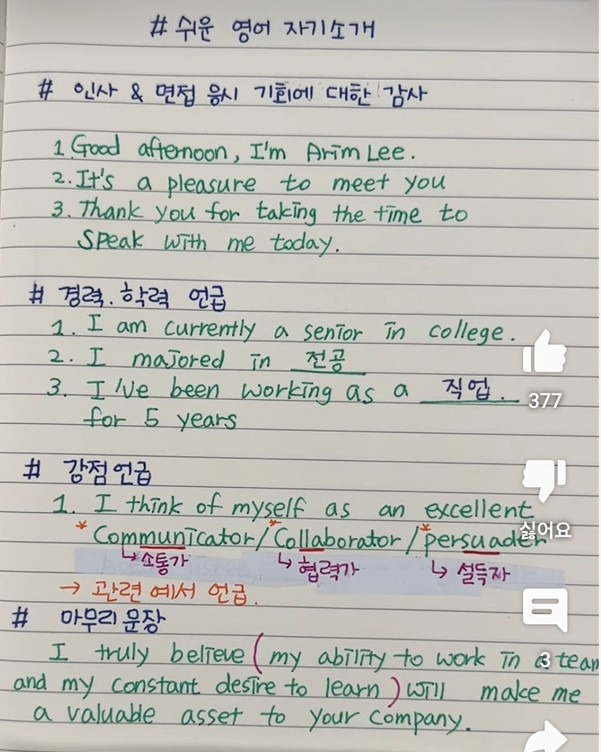 # 쉬운 영어 자기소개
# 인사 & 면접 응시 기회에 대한 감사
1. Good afternoon, I'm Arim Lee.
2. It's a pleasure to meet you
3. Thank you for taking the time to
speak with me today.
# 경력. 학력 언급
1. I am currently a senior in college.
2. I majored in 전공
3. I've been working as a 직업.
for 5 years
377
# 강점 언급
1. I think of myself as an excellent
* Communicator/*Collaborator/*persuader
싫어요
↳소통가 ↳협력가 ↳설득자
→ 관련 예시 언급.
# 마무리 문장
I truly believe (my ability to work in a team
3
and my constant desire to learn) will make me
a valuable asset to your company.